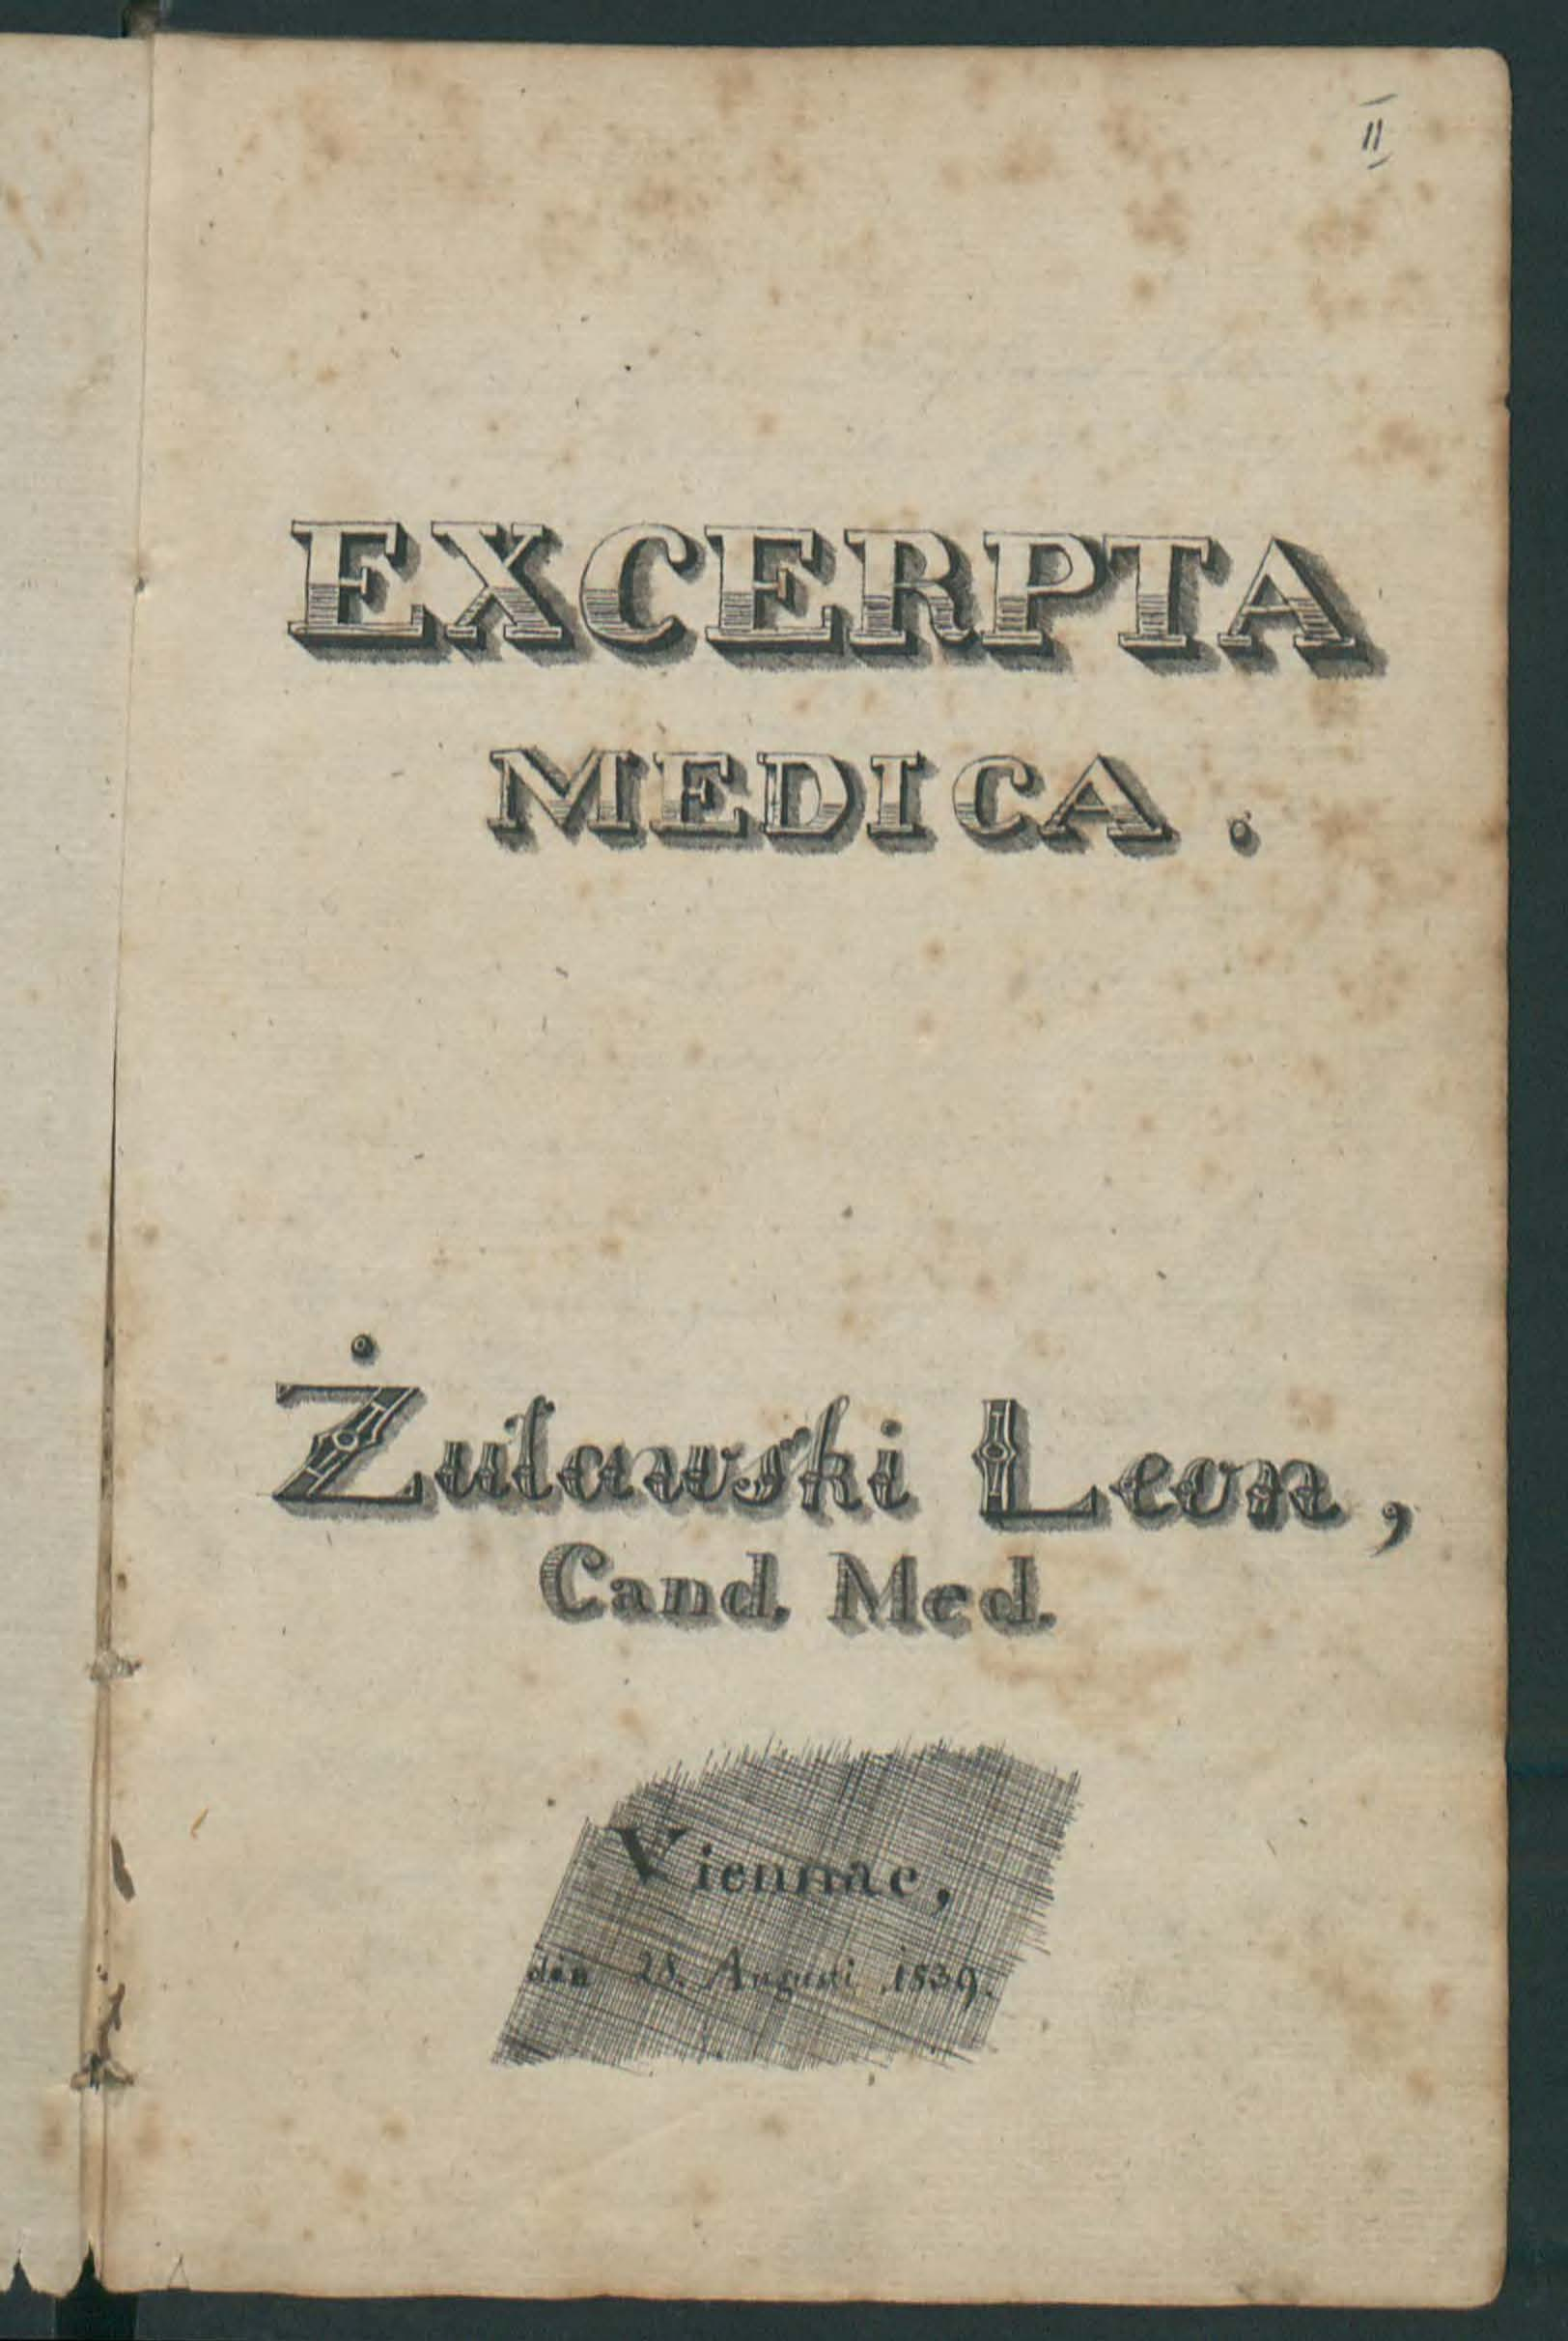 II
EXCERPTA
MEDICA.
Żuławski Leon,
Cand. Med.
Viennae,
den 28. Augusti 1839.